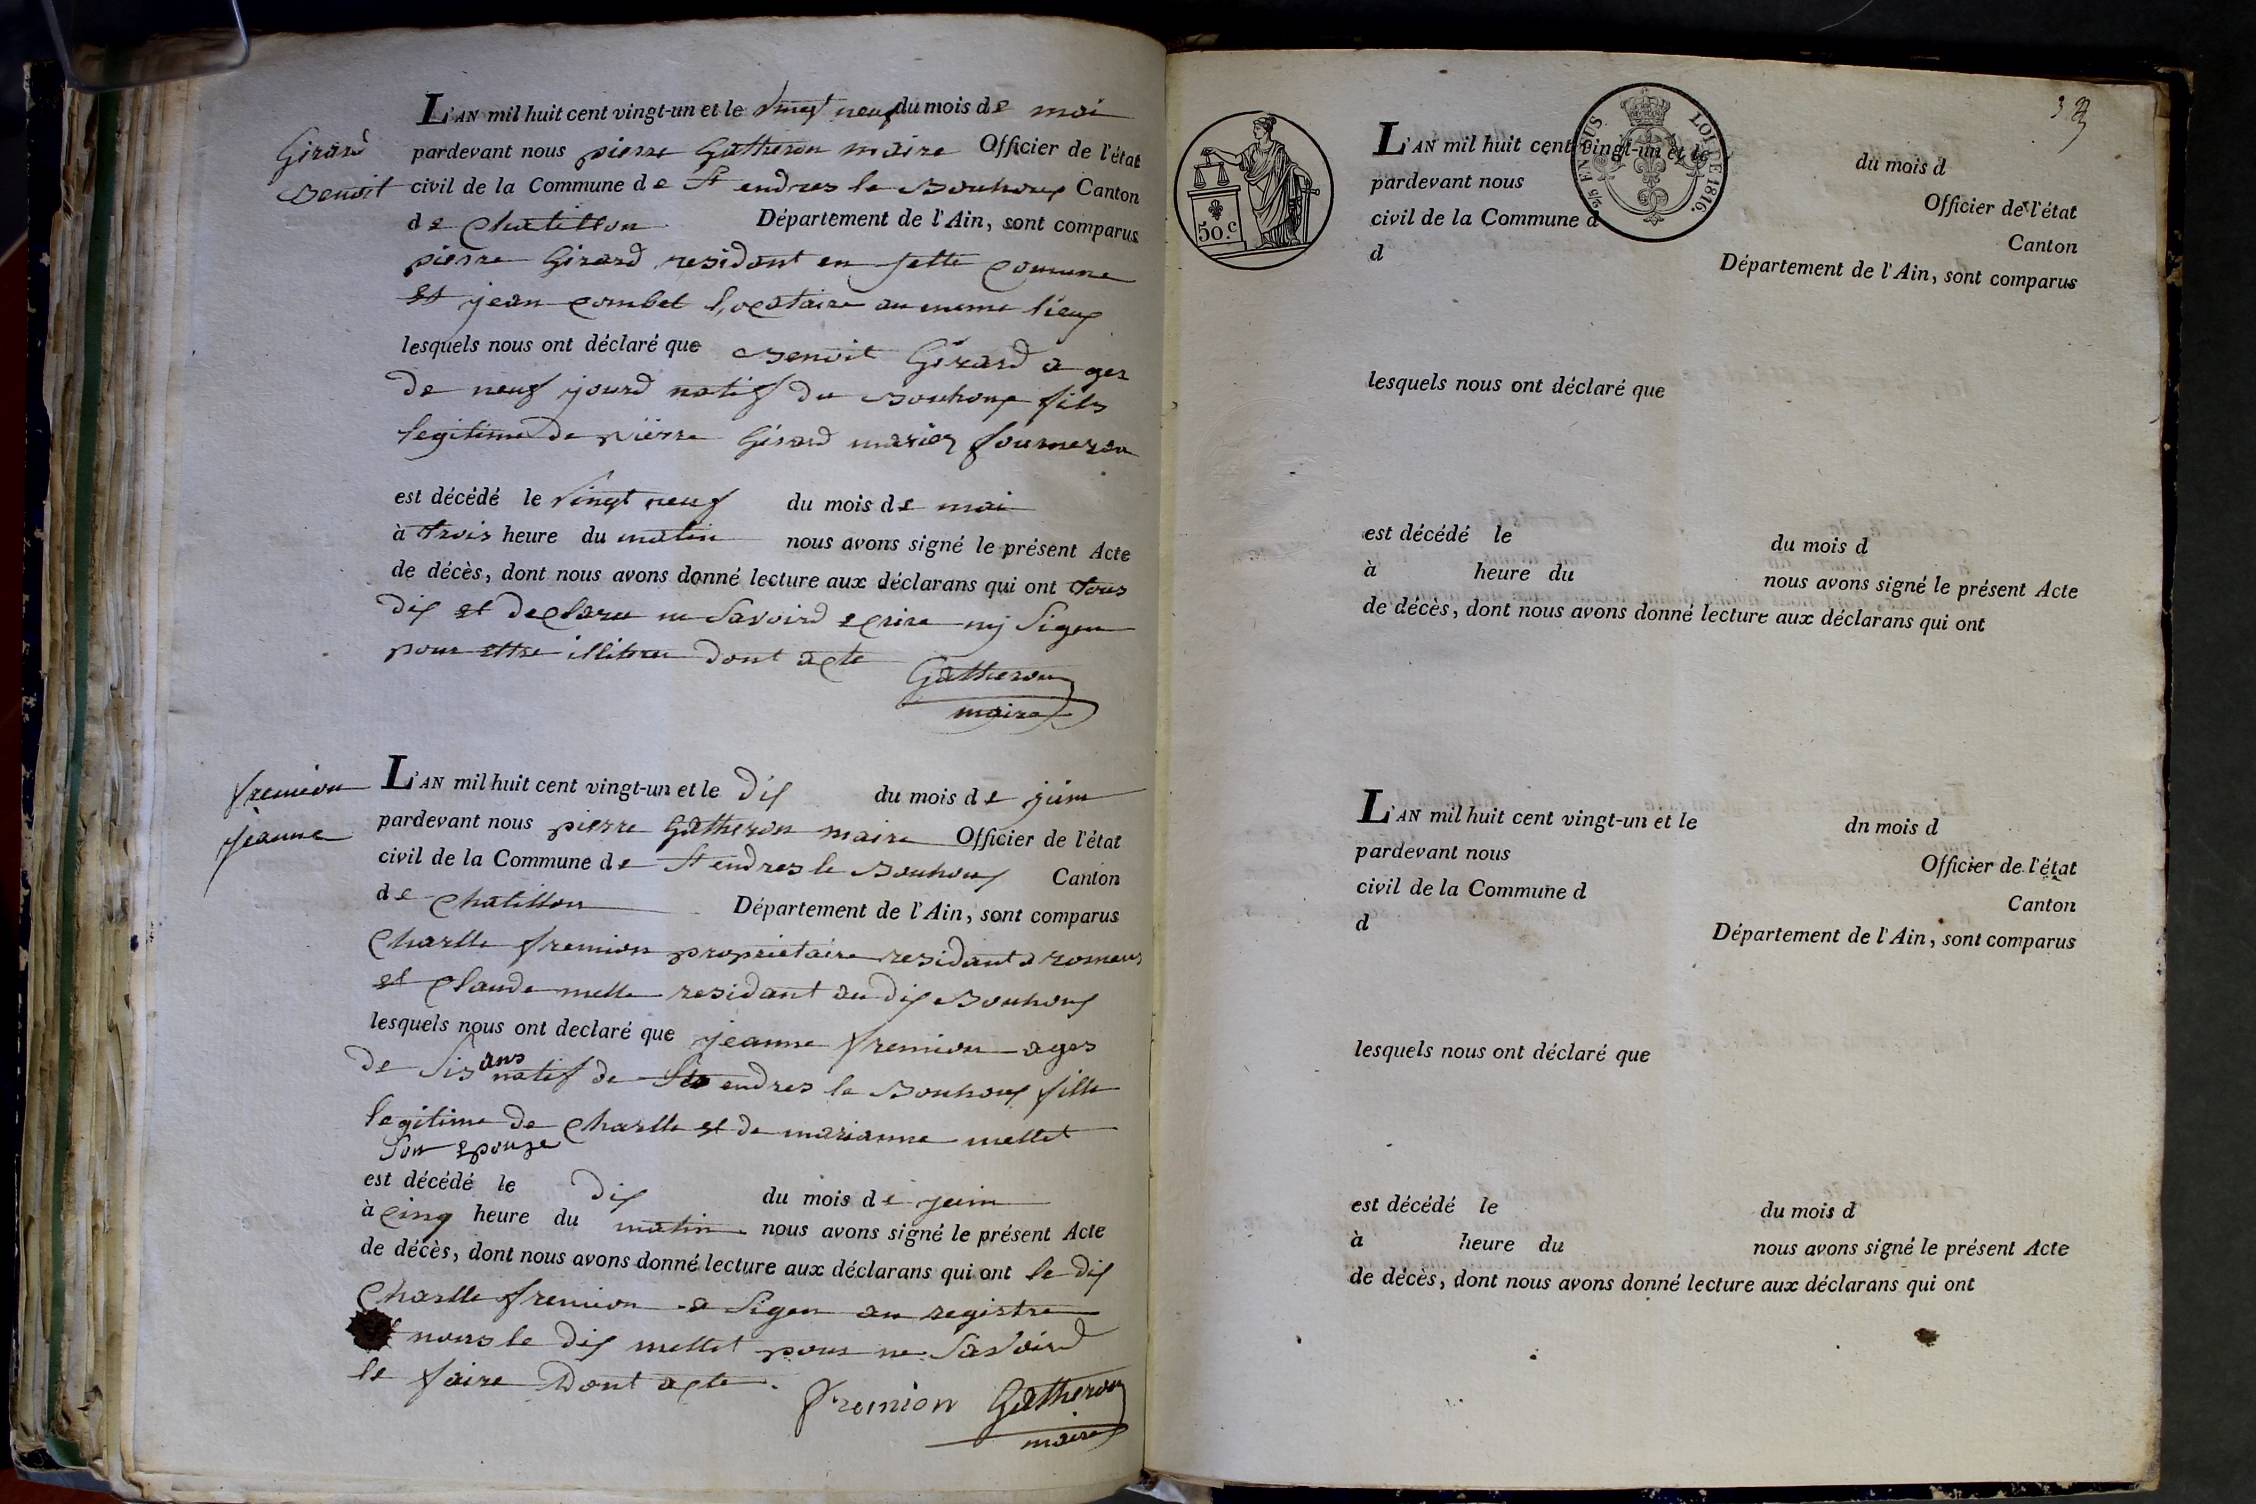 Girard
Benoit
L'AN mil huit cent vingt-un et le vingt neuf du mois de mai
pardevant nous pierre Gatheron maire Officier de l'état
civil de la Commune de St endres le Bouhoux Canton
de Chatillon Département de l'Ain, sont comparus
pierre Girard residant en sette comune
et jean combet locataire au meme lieux
lesquels nous ont déclaré que Benoit Girard a ges
de neuf jourd natif du Bouhoux fils
legitime de pierre Girard mariez fourneron
est décédé le vingt neuf du mois de mai
à trois heure du matin nous avons signé le présent Acte
de décès, dont nous avons donné lecture aux déclarans qui ont tous
dis et declaru ne Savoird ecrire nj Signe
pour ettre illitree dont acte
Gatheron
maire
fremion
jeanne
L'AN mil huit cent vingt-un et le dix du mois de juin
pardevant nous pierre Gatheron maire Officier de l'état
civil de la Commune de St endres le Bouhoux Canton
de Chatillon Département de l'Ain, sont comparus
Charlle fremion proprietaire residant a romans
et Claude melle residant au dis Bouhoux
lesquels nous ont declaré que jeanne fremion ages
de Sis ans natif de St endres le Bouhoux fille
legitime de Charlle et de marianne mellet
Son epouze
est décédé le dix du mois de juin
à cinq heure du matin nous avons signé le présent Acte
de décès, dont nous avons donné lecture aux déclarans qui ont le dis
Charlle fremion a Signe au registre
nous le dis mellet pour ne Savoird
le faire Dont acte.
fremion Gatheron
maire
50.c
5/10 EN SUS
LOI DE 1816.
L'AN mil huit cent vingt-un et le du mois d
pardevant nous Officier de l'état
civil de la Commune d Canton
d Département de l'Ain, sont comparus
lesquels nous ont déclaré que
est décédé le du mois d
à heure du nous avons signé le présent Acte
de décès, dont nous avons donné lecture aux déclarans qui ont
L'AN mil huit cent vingt-un et le dn mois d
pardevant nous Officier de l'état
civil de la Commune d Canton
d Département de l'Ain, sont comparus
lesquels nous ont déclaré que
est décédé le du mois d
à heure du nous avons signé le présent Acte
de décès, dont nous avons donné lecture aux déclarans qui ont